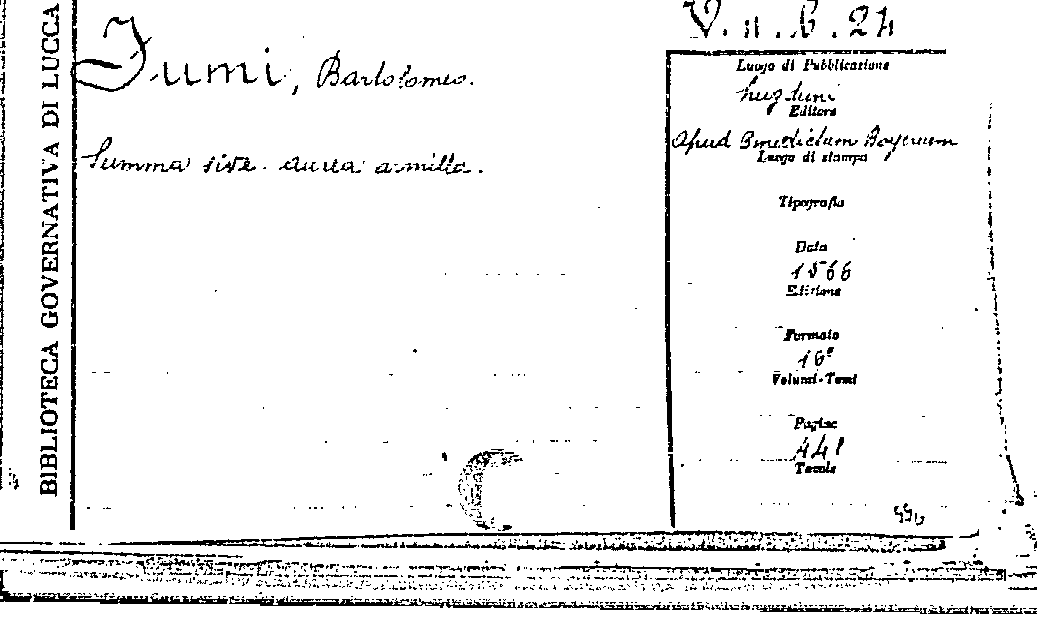 BIBLIOTECA GOVERNATIVA DI LUCCA
V. n. 6. 24
Fumi, Bartolomeo.
Summa sive aurea armilla.
Luogo di Pubblicazione
Lugduni
Editore
Apud Benedictum Boyerium
Luogo di stampa
Tipografia
Data
1566
Edizione
Formato
16°
Volumi-Tomi
Pagine
441
Tavole